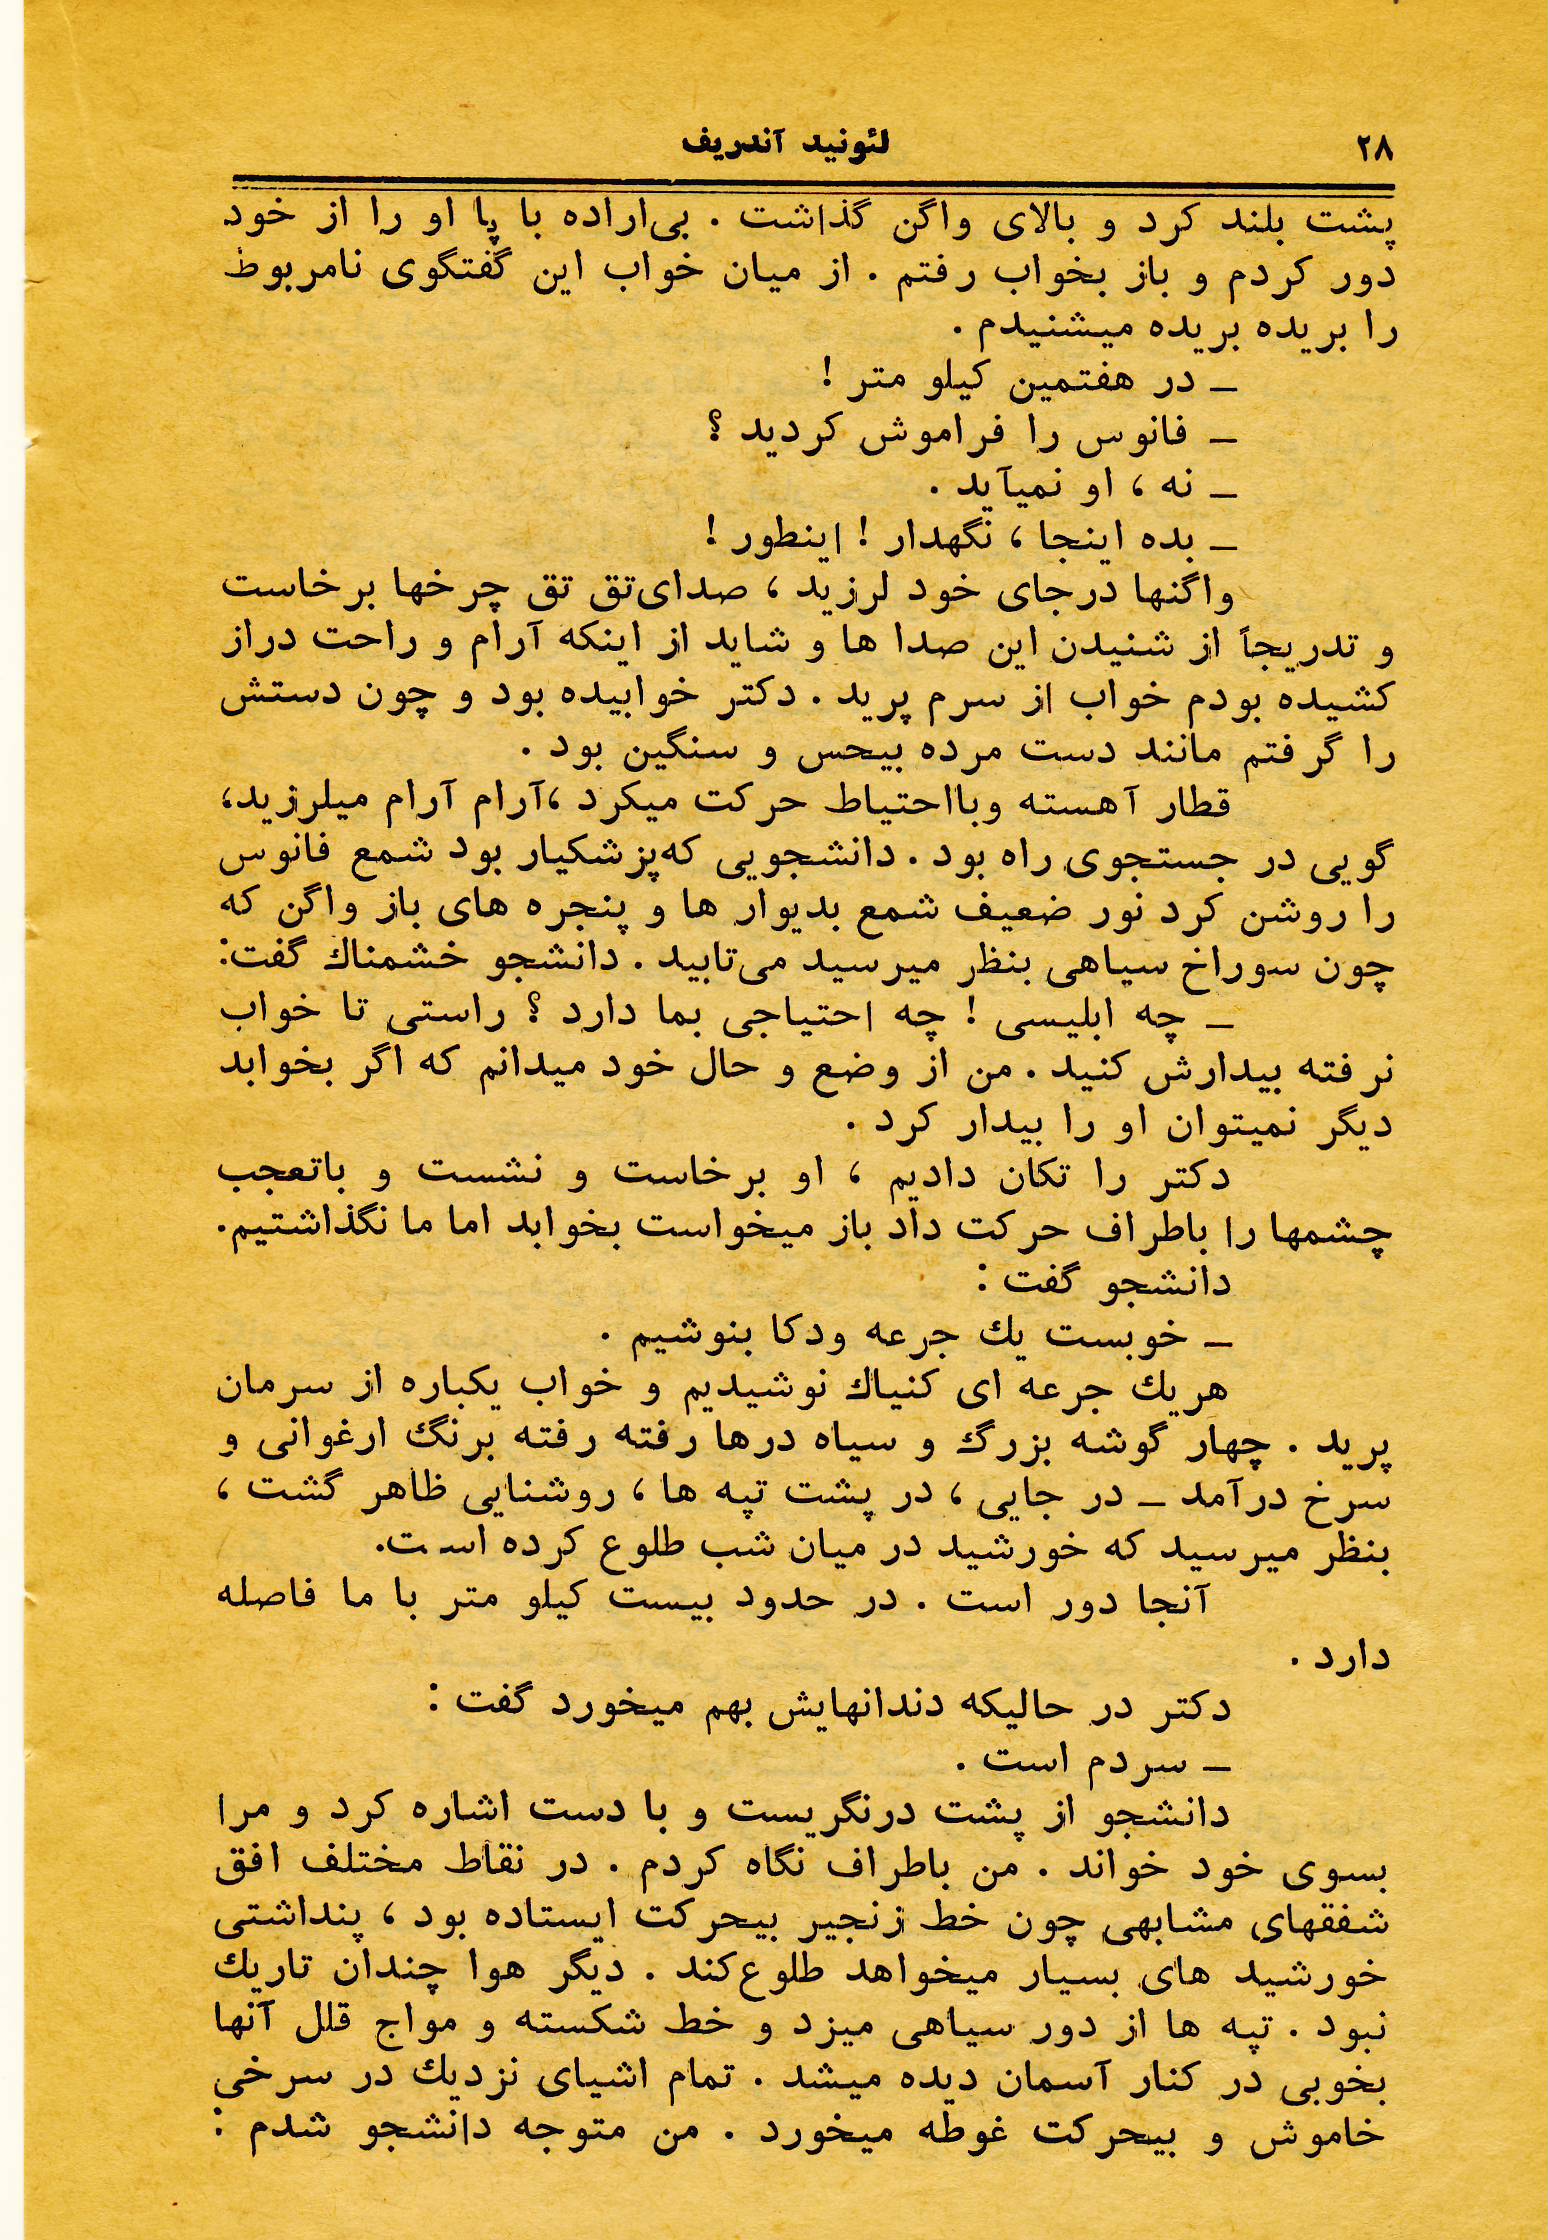 ۲۸
لئونید آندریف
پشت بلند کرد و بالای واگن گذاشت . بی‌اراده با پا او را از خود
دور کردم و باز بخواب رفتم . از میان خواب این گفتگوی نامربوط
را بریده بریده میشنیدم .
ـ در هفتمین کیلو متر !
ـ فانوس را فراموش کردید ؟
ـ نه ، او نمیآید .
ـ بده اینجا ، نگهدار ! اینطور !
واگنها درجای خود لرزید ، صدای‌تق تق چرخها برخاست
و تدریجاً از شنیدن این صدا ها و شاید از اینکه آرام و راحت دراز
کشیده بودم خواب از سرم پرید . دکتر خوابیده بود و چون دستش
را گرفتم مانند دست مرده بیحس و سنگین بود .
قطار آهسته وبااحتیاط حرکت میکرد ،آرام آرام میلرزید،
گویی در جستجوی راه بود . دانشجویی که‌پزشکیار بود شمع فانوس
را روشن کرد نور ضعیف شمع بدیوار ها و پنجره های باز واگن که
چون سوراخ سیاهی بنظر میرسید می‌تابید . دانشجو خشمناك گفت:
ـ چه ابلیسی ! چه احتیاجی بما دارد ؟ راستی تا خواب
نرفته بیدارش کنید . من از وضع و حال خود میدانم که اگر بخوابد
دیگر نمیتوان او را بیدار کرد .
دکتر را تکان دادیم ، او برخاست و نشست و باتعجب
چشمها را باطراف حرکت داد باز میخواست بخوابد اما ما نگذاشتیم.
دانشجو گفت :
ـ خوبست یك جرعه ودکا بنوشیم .
هریك جرعه ای کنیاك نوشیدیم و خواب یکباره از سرمان
پرید . چهار گوشه بزرگ و سیاه درها رفته رفته برنگ ارغوانی و
سرخ درآمد ـ در جایی ، در پشت تپه ها ، روشنایی ظاهر گشت ،
بنظر میرسید که خورشید در میان شب طلوع کرده است.
آنجا دور است . در حدود بیست کیلو متر با ما فاصله
دارد .
دکتر در حالیکه دندانهایش بهم میخورد گفت :
ـ سردم است .
دانشجو از پشت درنگریست و با دست اشاره کرد و مرا
بسوی خود خواند . من باطراف نگاه کردم . در نقاط مختلف افق
شفقهای مشابهی چون خط زنجیر بیحرکت ایستاده بود ، پنداشتی
خورشید های بسیار میخواهد طلوع‌کند . دیگر هوا چندان تاریك
نبود . تپه ها از دور سیاهی میزد و خط شکسته و مواج قلل آنها
بخوبی در کنار آسمان دیده میشد . تمام اشیای نزدیك در سرخی
خاموش و بیحرکت غوطه میخورد . من متوجه دانشجو شدم :